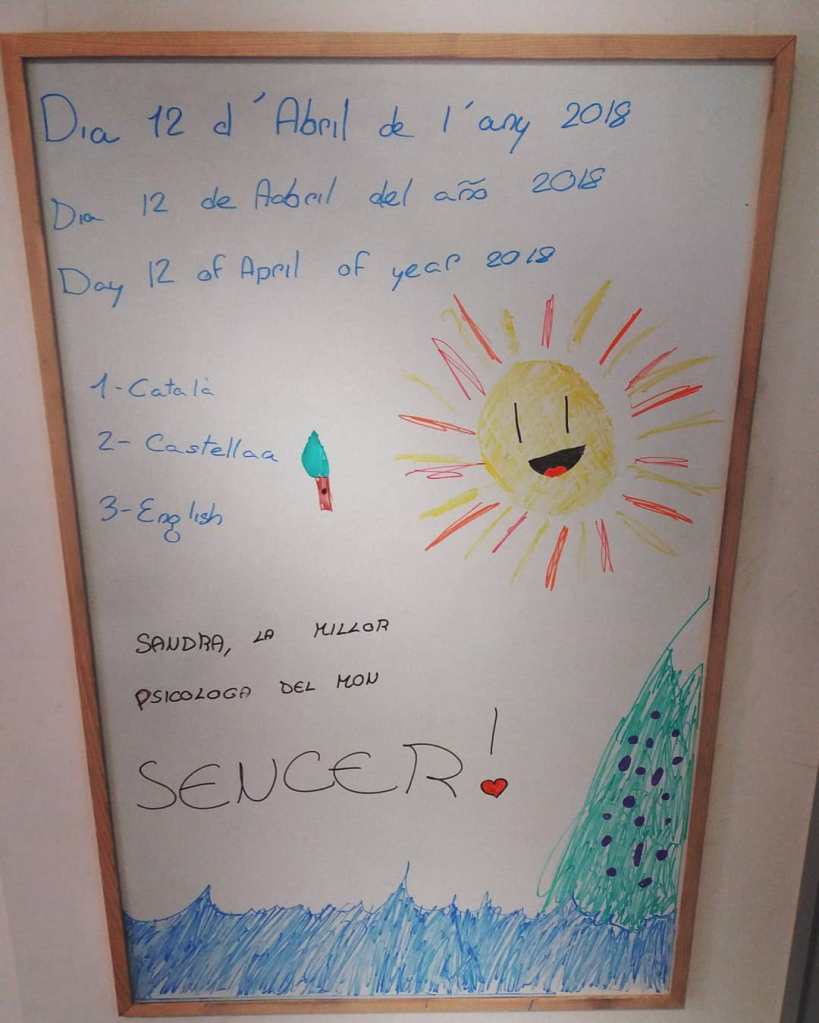 Dia 12 d´Abril de l´any 2018
Dia 12 de Aabril del año 2018
Day 12 of April of year 2018
1-Català
2- Castellaa
3-English
SANDRA, LA MILLOR
PSICOLOGA DEL MON
SENCER!